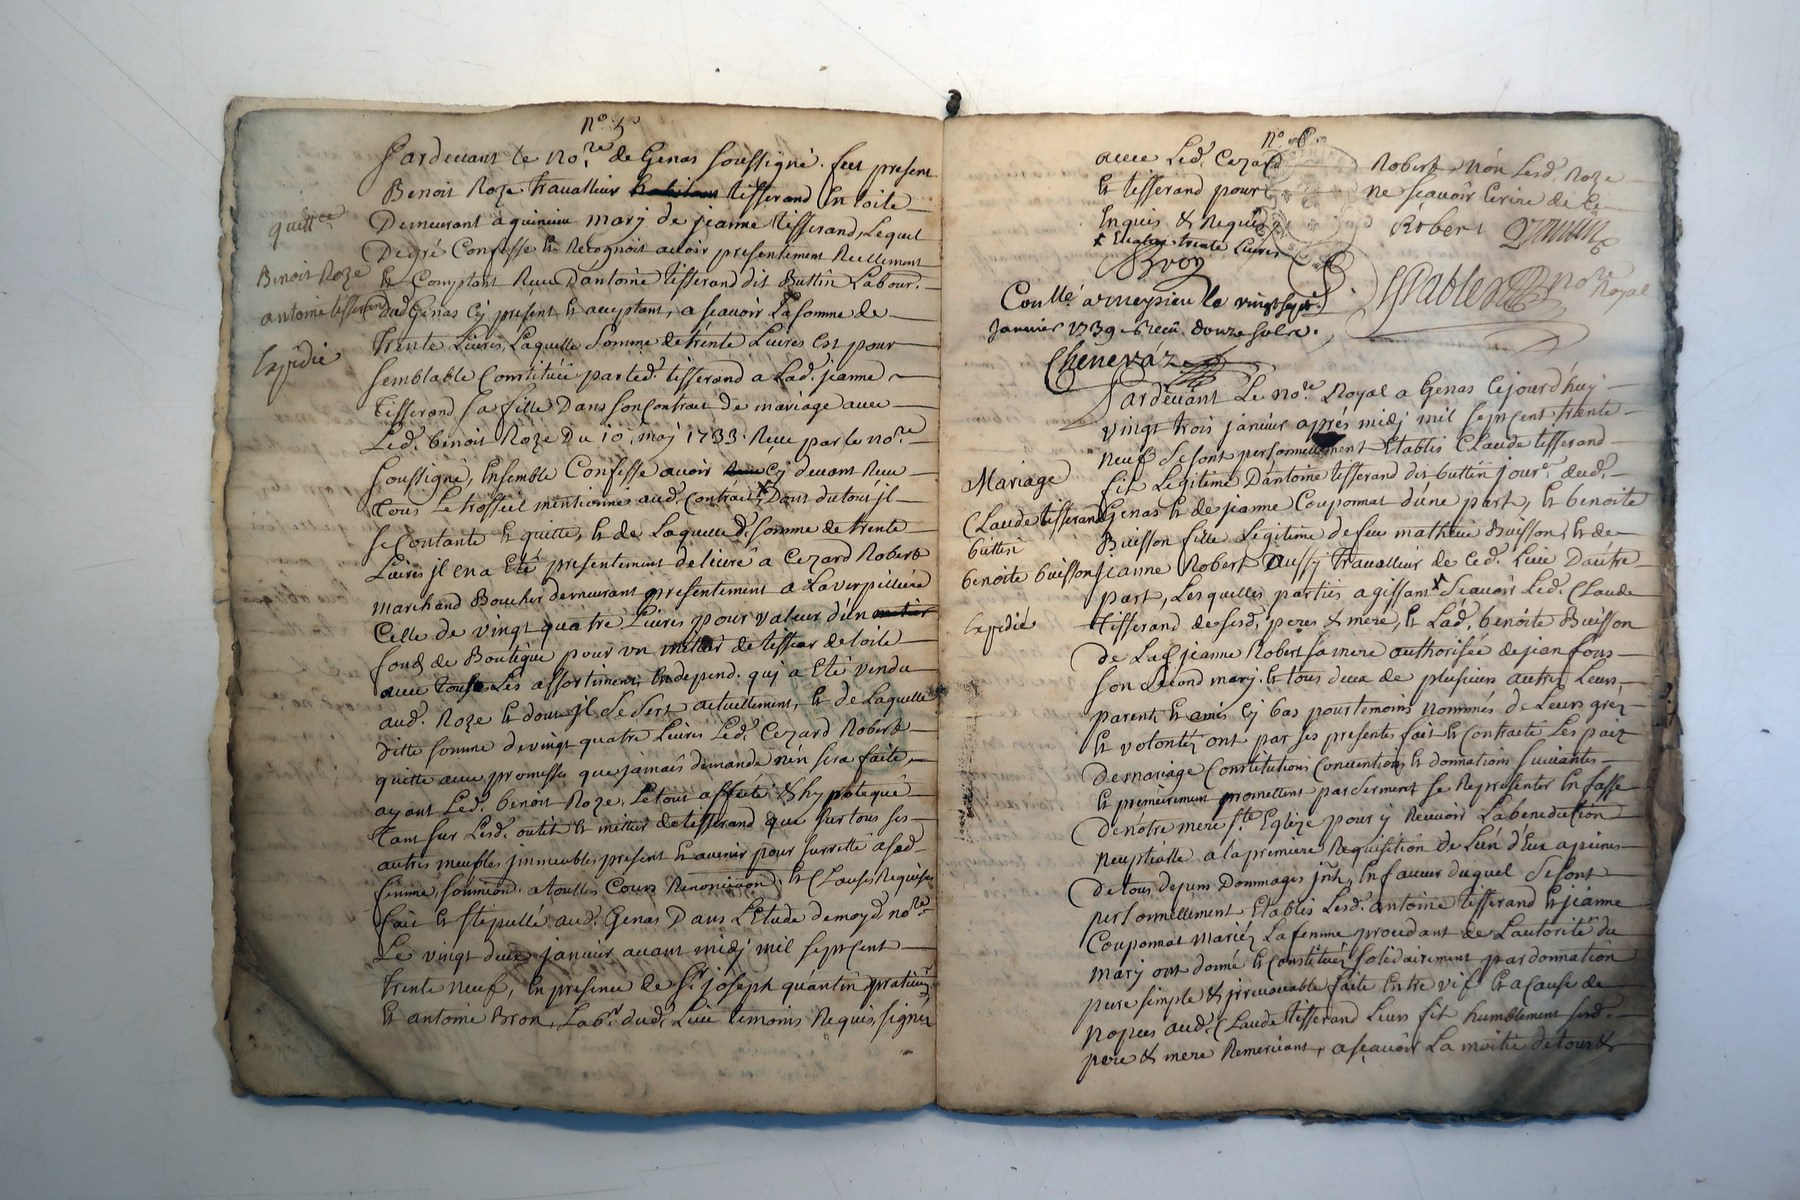 n.º 5
Pardevant le no.re de Genas soussigné. feut present
Benoit Roze travalleur tisserand en toile
Demeurant a quincieu marÿ de jeanne tisserand, Lequel
Degré Confesse et Recognoit avoir presentement Reellement
et Comptant Receu D'antoine tisserand dit Buttin Labour.r
dud. Genas Cy présent et acceptant, a scavoir La somme de
trente Livres, Laquelle somme de trente Livres est pour
semblable Constituée par led. tisserand a Lad. jeanne
tisserand sa fille Dans son contrat de mariage avec
Led. benoit Roze Du 10. maj 1733. Receu par le no.re
soussigné, Ensemble Confesse avoir Cy devant Receu
tous Le trosseil mentionné aud. Contrait, x Dont du tout jl
se contante et quitte, et de Laquelle d. somme de trente
Livres jl en a Eté presentement délivré a Cezard Robert
marchand Boucher demeurant presentement a Laverpilliere
Celle de vingt quatre Livres pour valeur d'un
fond de Boutique pour un mettier de tissier de toile
avec tous Les assortiments, et depend. quj a Eté vendu
aud. Roze et dont jl se sert actuellement, et de Laquelle
ditte somme de vingt quatre Livres Led. Cezard Robert
quitte avec promesse que jamais demande n'en sera faite,
ayant Led. benoit Roze, Le tout affecté & hypotequé
tant sur Lesd. outil et mettier de tisserand que sur tous ses
autres meubles jmmeubles present et avenir pour surretté a sad.
femme, soumiond. a touttes Cours Renonciaon. et Clauses Requises
fait et stipullé aud. Genas Dans L'Etude de moyd. no.re
Le vingt deux janvier avant midj mil sept cent
trente neuf, En presence de Sr. joseph quantin pratitien
et antoine Bron, Lab.r dud. Lieu temoins Requis, signés
quitt.ce
Benoit Roze
antoine tisserand
Expédié
n.º 6.
avec Led. Cezard Robert, nón Led. Roze
et tisserand pour ne scavoir Ecrire de ce
Enquis & Requis Robert Quantin
x Evalué trente Livres
Bron
Pable no.re Royal
Coullé a meyzieu le vingt sept
Janvier 1739. Receu. douze sols.
Chenevaz
Pardevant Le no.re Royal a Genas Cejourd'huy
vingt trois janvier aprés midj mil sept cent trente
neuf se sont personnellement Etablis Claude tisserand
fit Légitime D'antoine tisserand dit buttin jour.r dud.
Genas et de jeanne Couponnat d'une part, et benoite
Buisson fille Légitime de feu mathieu Buisson, et de
jeanne Robert Aussy travalleur de Ced. Lieu D'autre
part, Lesquelles parties agissant x Scavoir Led. Claude
tisserand de sesd. peres & mere, et Lad. benoite Buisson
de Lad. jeanne Robert sa mere authorisée de jean fons
son second marj. et tous deux de plusieurs autres Leurs
parents et amis Cy bas pour temoins nommés de Leurs grez
et volontez ont par ses presentes fait et Contracté Les paix
de mariage Constitutions Conventions et donnations suivantes
et premierement promettent par serment se Representer En fasse
De nôtre mere s.te Eglize pour y Recevoir La benediction
neuptialle a la premiere Requisition de L'un d'Eux a peines
De tous depens Dommages jnts, En faveur duquel se sont
personnellement Etablis Lesd. antoine tisserand et jeanne
Couponnat mariéz La femme procedant de L'autorité du
marj ont donné et Constituéz solidairement par donnation
pure simple & jrrevocable faite Entre vif et a Cause de
nopces aud. Claude tisserand Leurs fit humblement sesd.
pere & mere Remerciant, a scavoir La moitié de tous &
Mariage
Claude tisserand
buttin
benoite buisson
Expédié